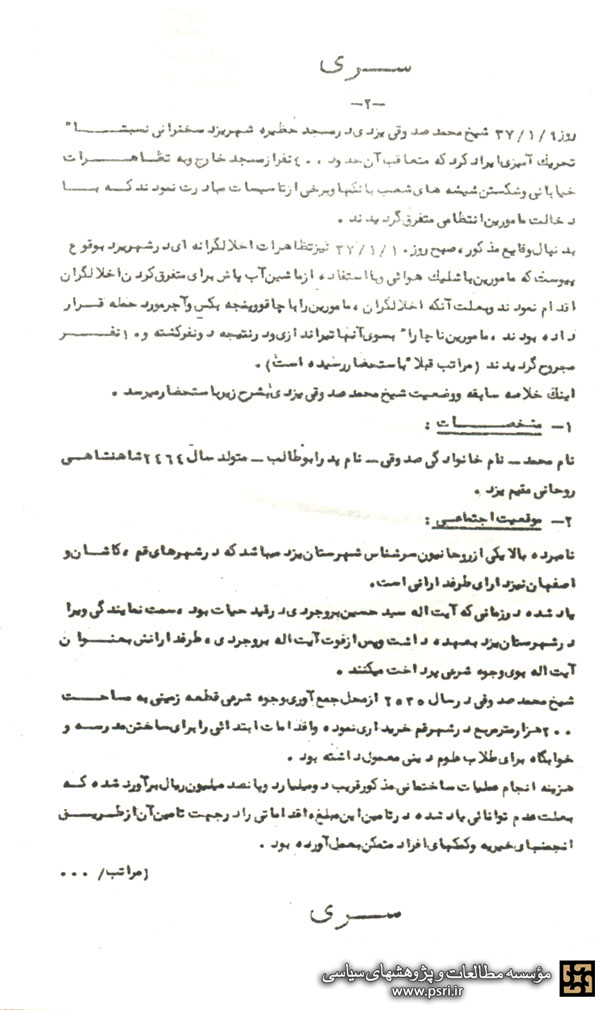 سری
-۲-
روز ۳۷/۱/۹ شیخ محمد صدوقی یزدی در مسجد حظیره شهر یزد سخنرانی نسبتا"
تحریک آمیزی ایراد کرد که متعاقب آن حدود ۴۰۰ نفر از مسجد خارج و به تظاهرات
خیابانی و شکستن شیشه های شعب بانکها و برخی از تاسیسات مبادرت نمودند که با
دخالت مامورین انتظامی متفرق گردیدند .
بدنبال وقایع مذکور، صبح روز ۳۷/۱/۱۰ نیز تظاهرات اخلالگرانه ای در شهر یزد بوقوع
پیوست که مامورین با شلیک هوائی و با استفاده از ماشین آب پاش برای متفرق کردن اخلالگران
اقدام نمودند و بعلت آنکه اخلالگران ، مامورین را با چاقو و پنجه بکس و آجر مورد حمله قرار
داده بودند ، مامورین ناچارا" بسوی آنها تیراندازی و در نتیجه دو نفر کشته و ۱۰ نفر
مجروح گردیدند (مراتب قبلا" باستحضار رسیده است) .
اینک خلاصه سابقه و وضعیت شیخ محمد صدوقی یزدی بشرح زیر باستحضار میرسد .
۱- مشخصات :
نام محمد - نام خانوادگی صدوقی - نام پدر ابوطالب - متولد سال ۲۴۶۴ شاهنشاهی
روحانی مقیم یزد .
۲- موقعیت اجتماعی :
نامبرده بالا یکی از روحانیون سرشناس شهرستان یزد میباشد که در شهرهای قم ، کاشان و
اصفهان نیز دارای طرفدارانی است.
یاد شده در زمانی که آیت اله سید حسین بروجردی در قید حیات بود ، سمت نمایندگی ویرا
در شهرستان یزد بعهده داشت و پس از فوت آیت اله بروجردی ، طرفدارانش بعنوان
آیت اله بوی وجوه شرعی پرداخت میکنند .
شیخ محمد صدوقی در سال ۲۵۳۵ از محل جمع آوری وجوه شرعی قطعه زمینی به مساحت
۲۰۰ هزار مترمربع در شهر قم خریداری نموده و اقدامات ابتدائی را برای ساختن مدرسه و
خوابگاه برای طلاب علوم دینی معمول داشته بود .
هزینه انجام عملیات ساختمانی مذکور قریب دو میلیارد و پانصد میلیون ریال برآورد شده که
بعلت عدم توانائی یاد شده در تامین این مبلغ ، اقداماتی را در جهت تامین آن از طریق
انجمنهای خیریه و کمکهای افراد متمکن بعمل آورده بود .
مراتب/ ...
سری
مؤسسه مطالعات و پژوهشهای سیاسی
www.psri.ir